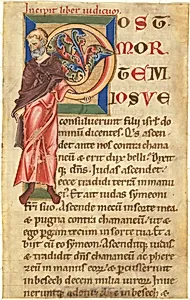 Incipit liber iudicum
POST
MOR
TEM
IOSVE
consuluerunt filii isrl do
minu dicentes. Qs ascen
det ante nos contra chana
neu & erit dux belli. Dixit
q dns. Iudas ascendet.
ecce tradidi terra in manu
Et ait iudas symeoni
fratri suo. Ascende mecu in sorte mea
& pugna contra chananeu. ut &
ego pgam tecum in sorte tua. Et a
biit cu eo symeon. Ascenditq iudas.
& tradidit dns chananeu ac phere
zeu in manus eor. & percusserunt
in bezech decem milia uiror. Inue